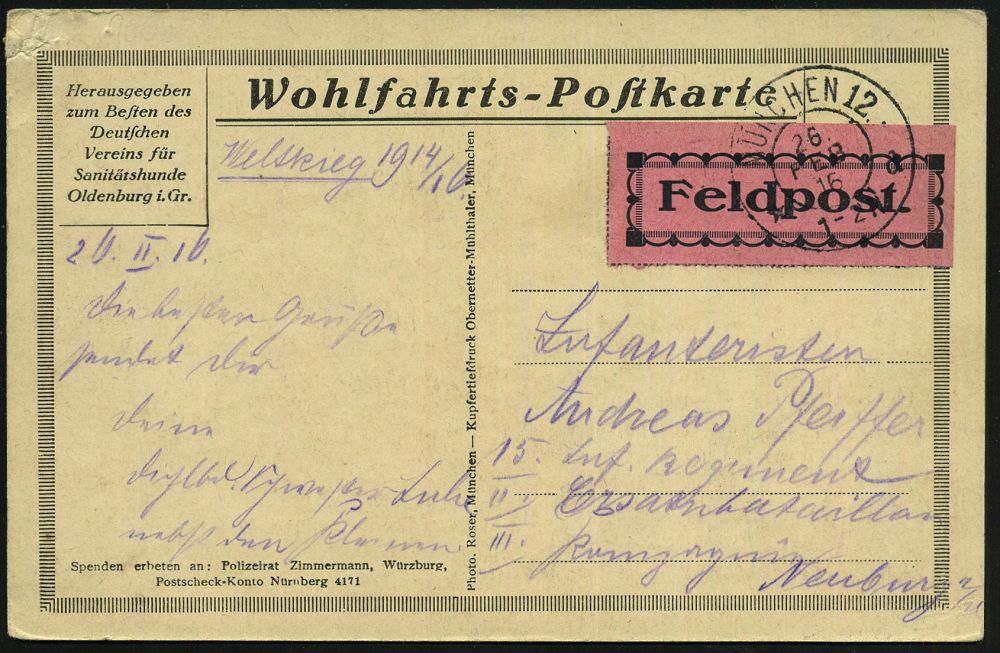 Herausgegeben
zum Beſten des
Deutſchen
Vereins für
Sanitätshunde
Oldenburg i. Gr.
Wohlfahrts-Poſtkarte
MÜNCHEN 12.
26.
FEB
16
1-2 N
Feldpost.
Weltkrieg 1914/16.
26. II. 16.
Die besten Grüße
sendet Dir
Deine
Schwester
nebst den Kleinen.
Spenden erbeten an: Polizeirat Zimmermann, Würzburg,
Postscheck-Konto Nürnberg 4171
Photo. Roser, München — Kupfertiefdruck Obernetter-Mühlthaler, München
Infanteristen
Andreas Pfeiffer
15. Inf. Regiment
II. Ersatzbataillon
III. Kompagnie
Neuburg a/D